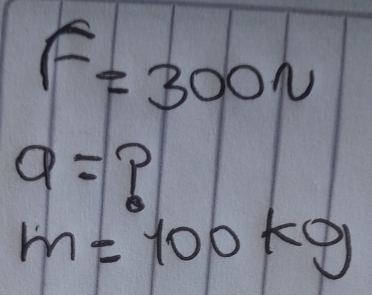 F = 300N
a = ?
m = 100 kg